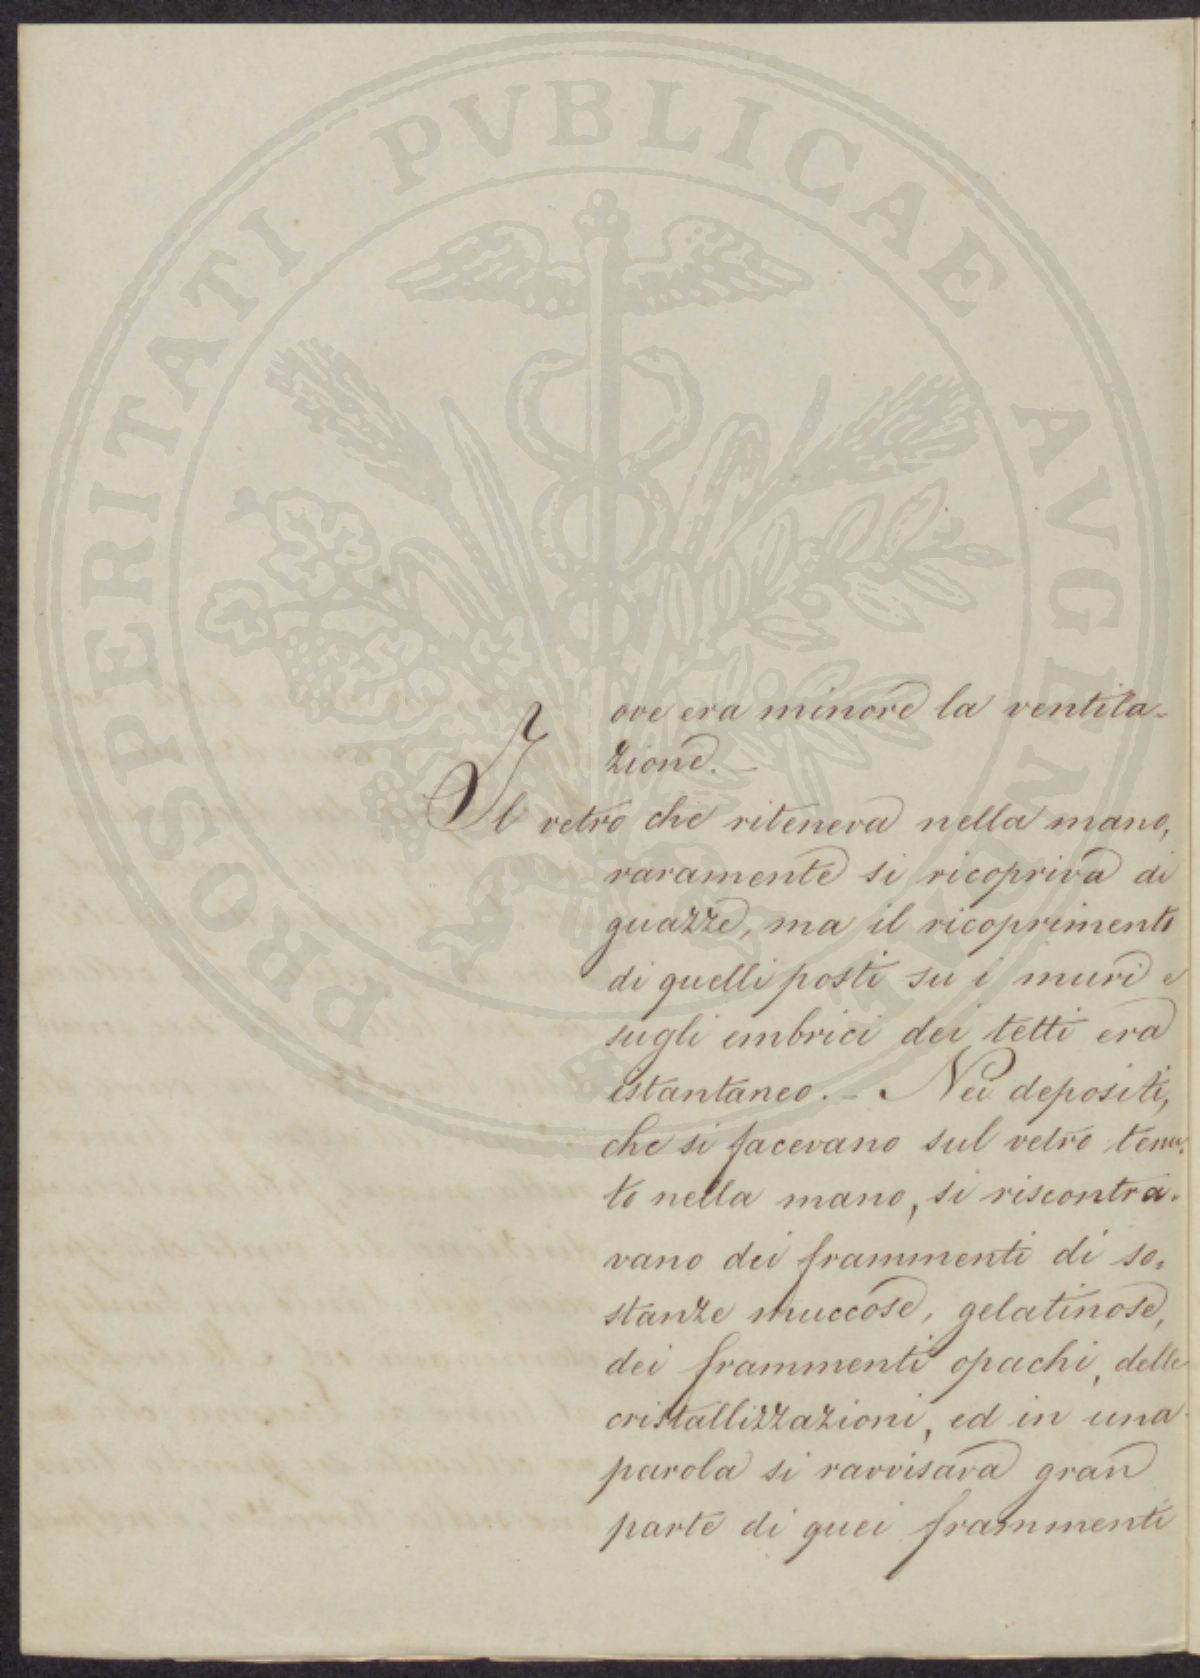 PROSPERITATI PVBLICAE AVGENDAE
ove era minore la ventila-
zione. -
Il vetro che riteneva nella mano,
raramente si ricopriva di
guazze, ma il ricoprimento
di quelli posti su i muri e
sugli embrici dei tetti era
istantaneo. - Nei depositi,
che si facevano sul vetro tenu-
to nella mano, si riscontra-
vano dei frammenti di so-
stanze muccose, gelatinose,
dei frammenti opachi, delle
cristallizzazioni, ed in una
parola si ravvisava gran
parte di quei frammenti